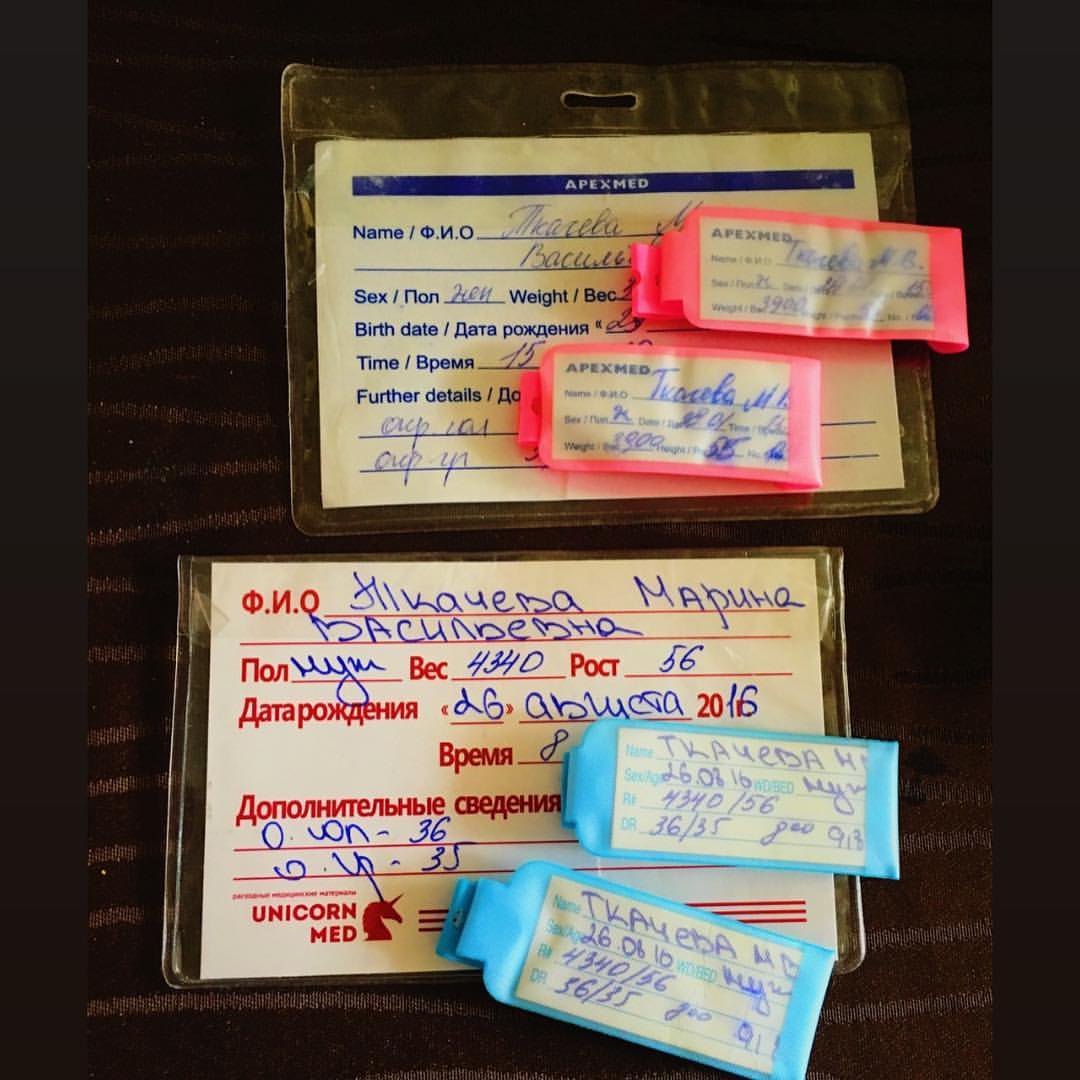 APEXMED
Name / Ф.И.О Ткачева М
Василь
Sex / Пол жен Weight / Вес 3
Birth date / Дата рождения “2
Time / Время 15
Further details / До
окр. гол
окр-гр 3
APEXMED
Name / Ф.И.О Ткачева М. В.
Sex / Пол ж
Weight / 3900
APEXMED
Name / Ф.И.О Ткачева М.В.
Sex / Пол ж Date / 28 01 Time /
Weight / 3900 Height / 55 No.
Ф.И.О Ткачева Марина
Васильевна
Пол муж Вес 4340 Рост 56
Дата рождения «26» августа 2016
Время 8
Дополнительные сведения
О. гол - 36
о. гр - 35
расходные медицинские материалы
UNICORN
MED
Name ТКАЧЕВА М
Sex/Age 26.08 16 WD/BED муж
R# 4340/56
DR 36/35
Name ТКАЧЕВА М В
Sex/Age 26.08 16
R# 4340/56 WD/BED муж
DR 36/35